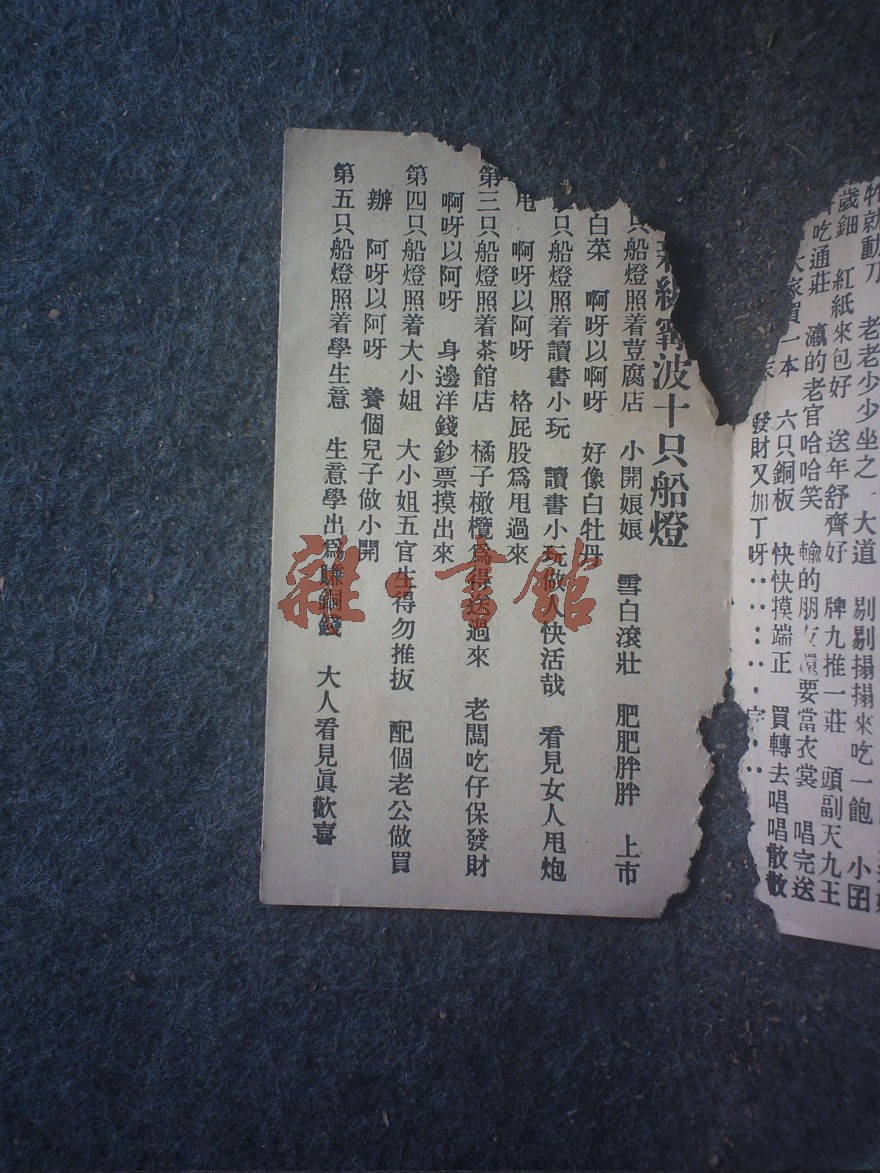 就動刀 老老少少坐之 大道 剔剔搨搨來吃一飽 小囝
歲鈿 紅紙來包好 送年舒齊好 牌九推一莊 頭副天九王
吃通莊 瀛的老官哈哈笑 輸的朋友還要當衣裳 唱完送
大家買一本 六只銅板 快快摸端正 買轉去唱唱散散
發財又加丁呀
新編甯波十只船燈
只船燈照着荳腐店 小開娘娘 雪白滾壯 肥肥胖胖 上市
白菜 啊呀以啊呀 好像白牡丹
只船燈照着讀書小玩 讀書小玩做人快活哉 看見女人甩炮
甩 啊呀以阿呀 格屁股爲甩過來
第三只船燈照着茶館店 橘子橄欖爲得送過來 老闆吃仔保發財
啊呀以阿呀 身邊洋錢鈔票摸出來
第四只船燈照着大小姐 大小姐五官生得勿推扳 配個老公做買
辦 阿呀以阿呀 養個兒子做小開
第五只船燈照着學生意 生意學出爲賺銅錢 大人看見眞歡喜
雜·書館